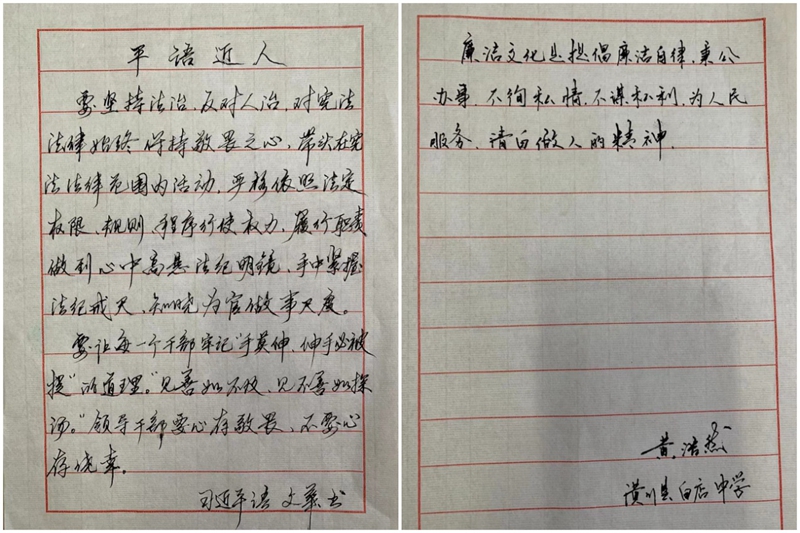 平语近人
要坚持法治、反对人治，对宪法
法律始终保持敬畏之心，带头在宪
法法律范围内活动，严格依照法定
权限、规则、程序行使权力、履行职责
做到心中高悬法纪明镜、手中紧握
法纪戒尺，知晓为官做事尺度。
要让每一个干部牢记“手莫伸，伸手必被
捉”的道理。“见善如不及，见不善如探
汤。”领导干部要心存敬畏，不要心
存侥幸。
习近平语 文华书
廉洁文化是提倡廉洁自律，秉公
办事，不徇私情，不谋私利，为人民
服务，清白做人的精神.
黄浩然
潢川县白店中学